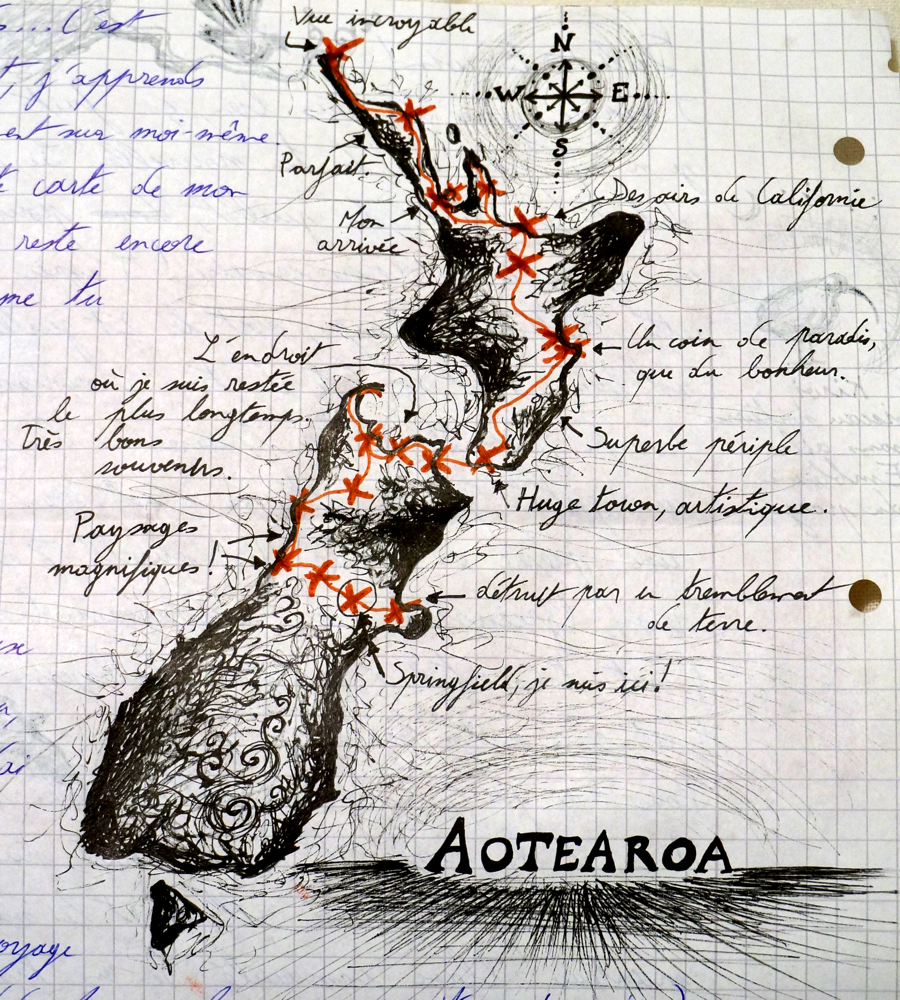 c'est
j'apprends
sur moi-même.
carte de mon
reste encore
me tu
Vue incroyable
N
W E
S
Parfait.
Mon
arrivée
Des airs de Californie
Un coin de paradis,
que du bonheur.
L'endroit
où je suis restée
le plus longtemps.
Très bons
souvenirs.
Superbe périple
Huge town, artistique.
Paysages
magnifiques!
détruit par un tremblement
de terre.
Springfield, je suis ici!
AOTEAROA